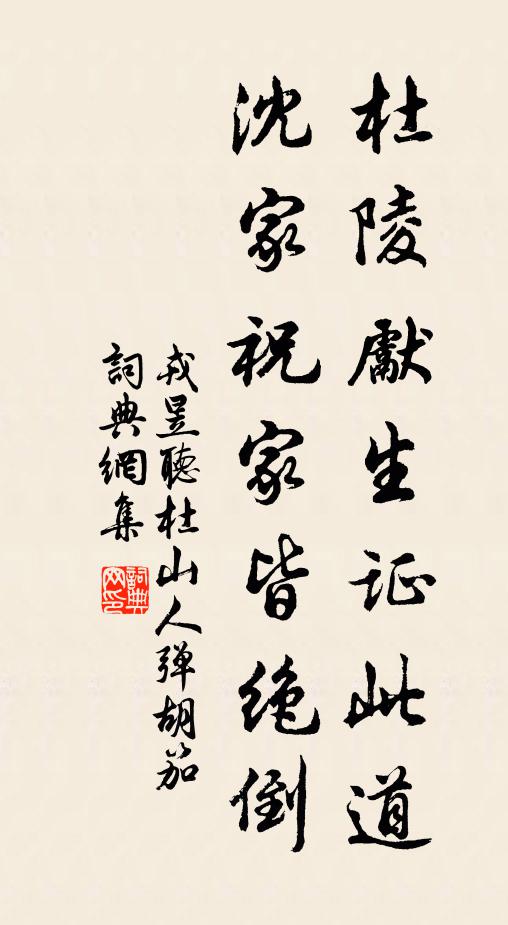 杜陵獻生証此道
沈家祝家皆絶倒
戎昱聽杜山人弹胡笳
詞典網集
詞典網印